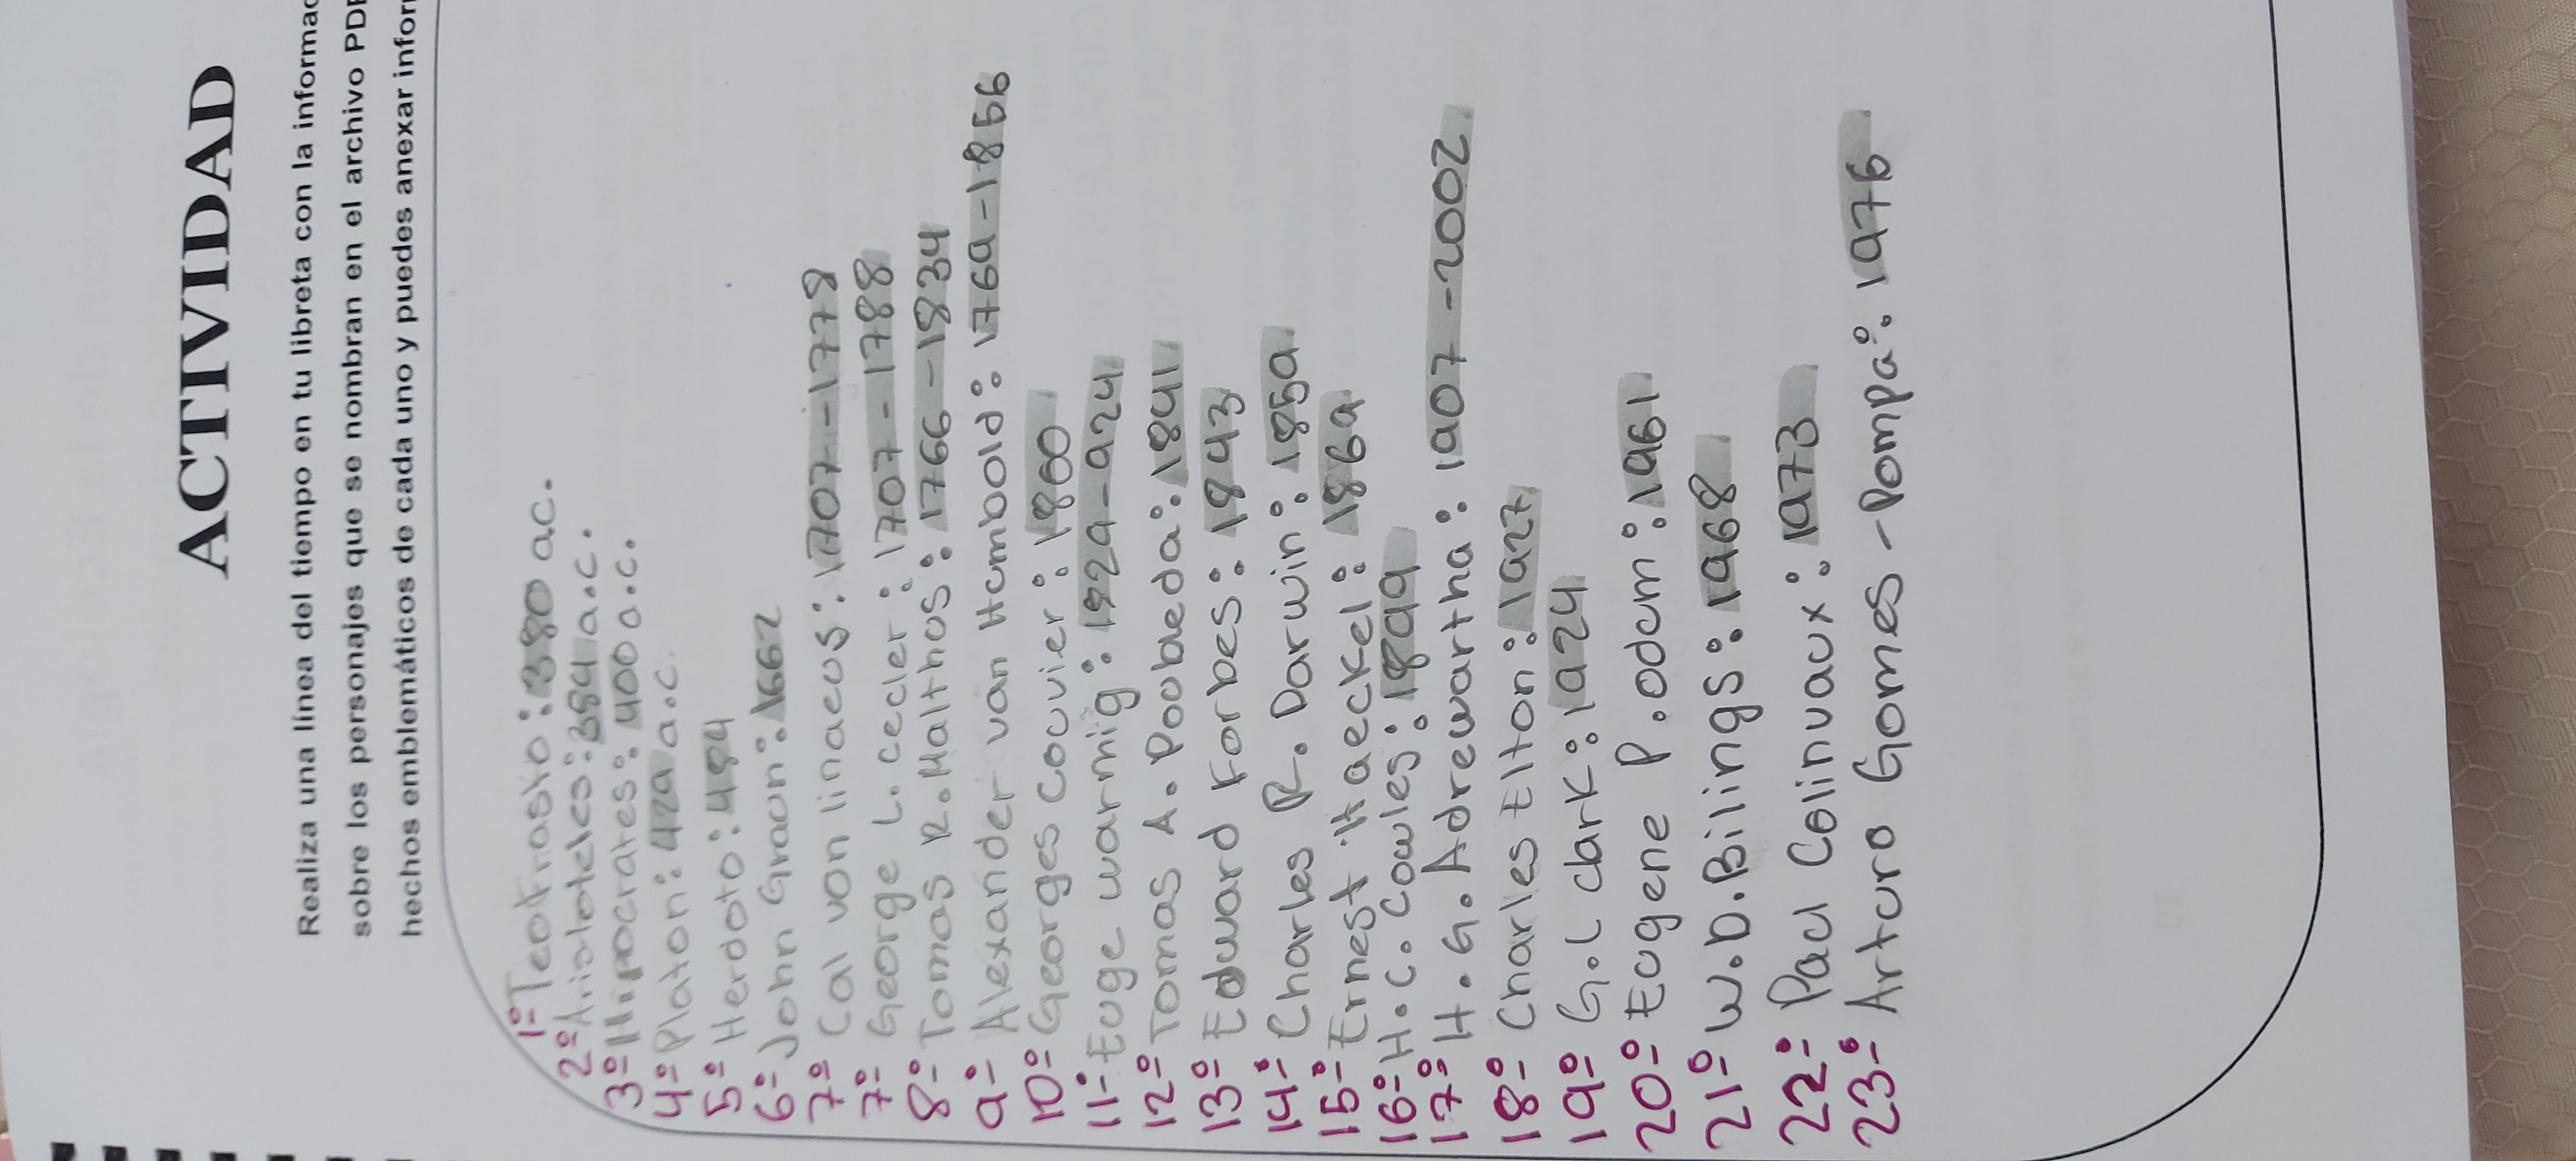 ACTIVIDAD
Realiza una línea del tiempo en tu libreta con la
sobre los personajes que se nombran en el archivo
hechos emblemáticos de cada uno y puedes anexar
1º Teofrasto: 380 ac.
2º Aristoteles: 384 a.c.
3º Hipocrates: 400 a.c.
4º Platon: 429 a.c.
5º Herdoto: 484
6º John Graun: 1662
7º Cal von linaeus: 1707-1778
7º George L. cecler: 1707-1788
8º Tomas R. Malthus: 1766-1834
9º Alexander van Humbold: 1769-1856
10º Georges Couvier: 1860
11º Euge warmig: 1929-924
12º Tomas A. Poubleda: 1841
13º Edward Forbes: 1843
14º Charles R. Darwin: 1859
15º Ernest Haeckel: 1869
16º H.C. Cowles: 1899
17º H.G. Adrewartha: 1907-2002
18º Charles Elton: 1927
19º G.L clark: 1924
20º Eugene P. odum: 1961
21º W.D. Bilings: 1968
22º Paul Colinvaux: 1973
23º Arturo Gomes-Pompa: 1976